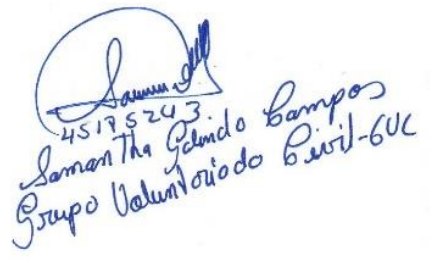 45175243
Samantha Galindo Campos
Grupo Voluntariado Civil-GVC